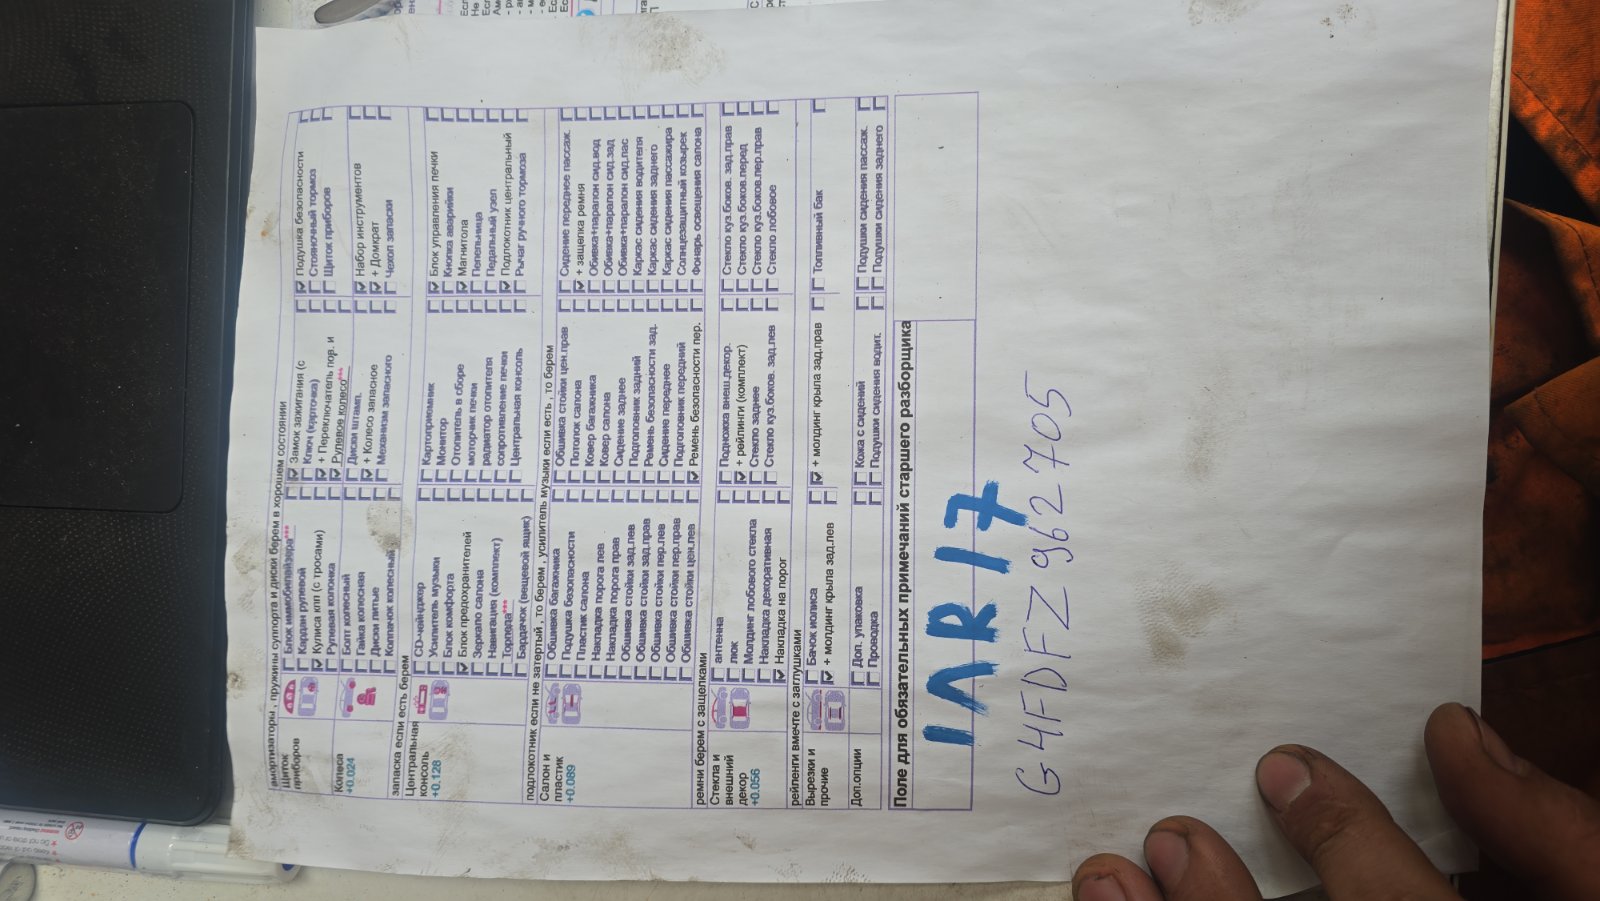 амортизаторы , пружины суппорта и диски берем в хорошем состоянии
Щиток приборов
Блок иммобилайзера***
Кардан рулевой
Кулиса кпп (с тросами)
Рулевая колонка
Замок зажигания (с
Ключ (карточка)
+ Переключатель пов. и
Рулевое колесо***
Подушка безопасности
Стояночный тормоз
Щиток приборов
Колеса
+0.024
Болт колесный
Гайка колесная
Диски литые
Колпачок колесный
Диски штамп.
+ Колесо запасное
Механизм запасного
Набор инструментов
+ Домкрат
Чехол запаски
запаска если есть берем
Центральная консоль
+0.128
CD-чейнджер
Усилитель музыки
Блок комфорта
Блок предохранителей
Зеркало салона
Навигация (комплект)
Торпеда***
Бардачок (вещевой ящик)
Картоприемник
Монитор
Отопитель в сборе
моторчик печки
радиатор отопителя
сопротивление печки
Центральная консоль
Блок управления печки
Кнопка аварийки
Магнитола
Пепельница
Педальный узел
Подлокотник центральный
Рычаг ручного тормоза
подлокотник если не затертый , то берем , усилитель музыки если есть , то берем
Салон и пластик
+0.089
Обшивка багажника
Подушка безопасности
Пластик салона
Накладка порога лев
Накладка порога прав
Обшивка стойки зад.лев
Обшивка стойки зад.прав
Обшивка стойки пер.лев
Обшивка стойки пер.прав
Обшивка стойки цен.лев
Обшивка стойки цен.прав
Потолок салона
Ковер багажника
Ковер салона
Сидение заднее
Подголовник задний
Ремень безопасности зад.
Сидение переднее
Подголовник передний
Ремень безопасности пер.
Сидение переднее пассаж.
+ защелка ремня
Обивка+паралон сид.вод
Обивка+паралон сид.зад
Обивка+паралон сид.пас
Каркас сидения водителя
Каркас сидения заднего
Каркас сидения пассажира
Солнцезащитный козырек
Фонарь освещения салона
ремни берем с защелками
Стекла и внешний декор
+0.056
антенна
люк
Молдинг лобового стекла
Накладка декоративная
Накладка на порог
Подножка внеш.декор.
+ рейлинги (комплект)
Стекло заднее
Стекло куз.боков. зад.лев
Стекло куз.боков. зад.прав
Стекло куз.боков.перед
Стекло куз.боков.пер.прав
Стекло лобовое
рейленги вмечте с заглушками
Вырезки и прочие
Бачок иолиса
+ молдинг крыла зад.лев
+ молдинг крыла зад.прав
Топливный бак
Доп.опции
Доп. упаковка
Проводка
Кожа с сидений
Подушки сидения водит.
Подушки сидения пассаж.
Подушки сидения заднего
Поле для обязательных примечаний старшего разборщика
1ЛR 17
G4FDFZ962705